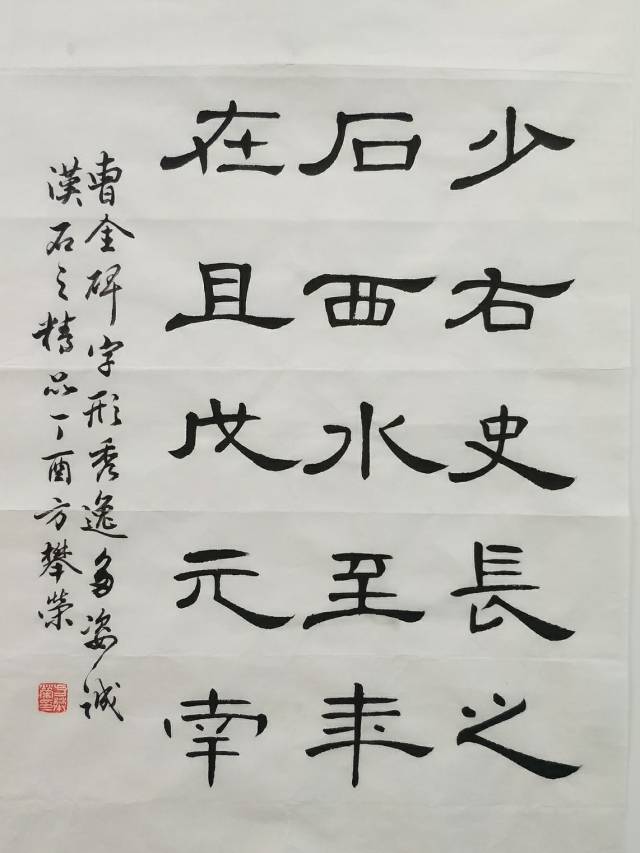 少右史長之
石西水至年
在且戊元幸
曹全碑字形秀逸多姿誠
漢石之精品丁酉方攀榮